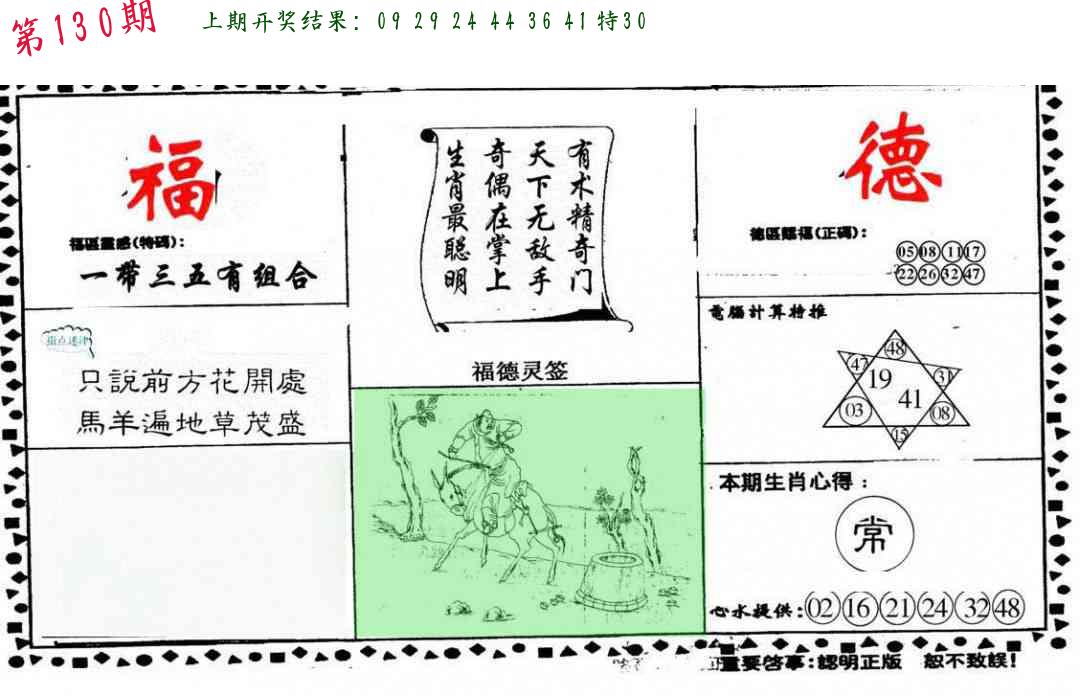 第130期
上期开奖结果：09 29 24 44 36 41特30
福
福區靈感(特碼)：
一帶三五有組合
指点迷津
只說前方花開處
馬羊遍地草茂盛
有术精奇门
天下无敌手
奇偶在掌上
生肖最聪明
福德灵签
德
德區賜福(正碼)：
05 08 11 17
22 26 32 47
電腦計算特推
48
47 19 31
03 41 08
15
本期生肖心得：
常
心水提供：02 16 21 24 32 48
重要啓事：認明正版 恕不致誤！